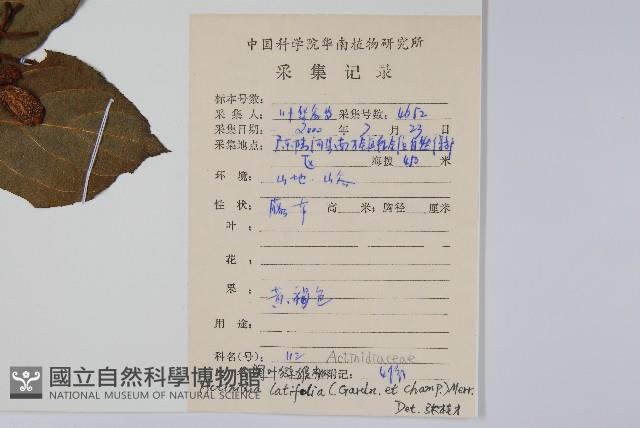 中国科学院华南植物研究所
采集记录
标本号数:
采集人: 叶华谷 采集号数: 4652
采集日期: 2000年7月23日
采集地点: 广东陆河县南
区 海拔 450 米
环境: 山地·山谷
性状: 藤本 高 米; 胸径 厘米
叶:
花:
果: 黄褐色
用途:
科名(号): 112 Actinidiaceae
阔叶猕猴桃 附记:
國立自然科學博物館
Actinidia latifolia (Gardn. et Champ.) Merr.
NATIONAL MUSEUM OF NATURAL SCIENCE
Det. 张桂才